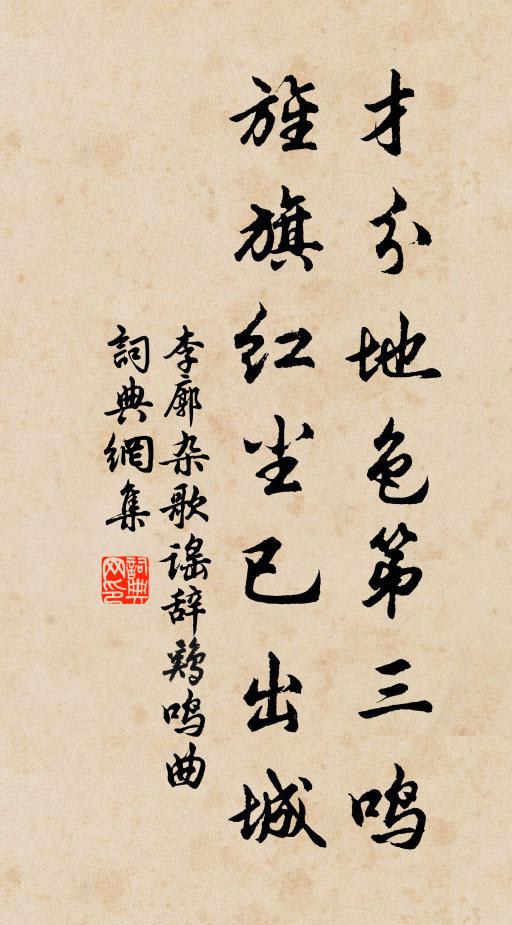 才分地色第三鸣
旌旗红尘已出城
李廓杂歌谣辞鸡鸣曲
詞典網集
詞典网印